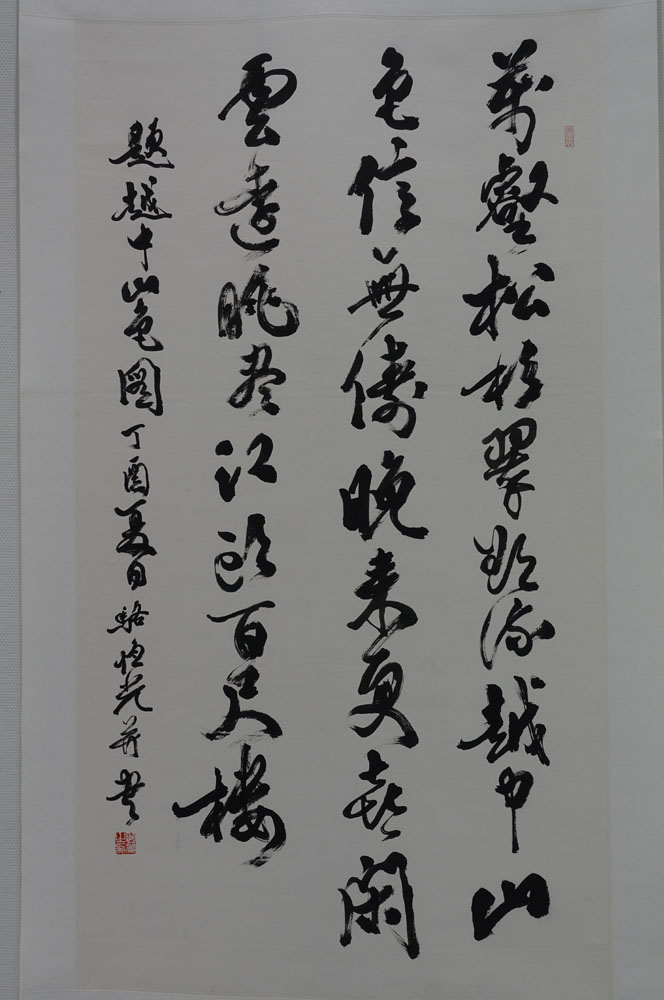 萬壑松杉翠欲流越中山
色信無儔晚来更喜閑
雲遠眺盡江頭百尺樓
題越中山色圖丁酉夏日駱恒光并書